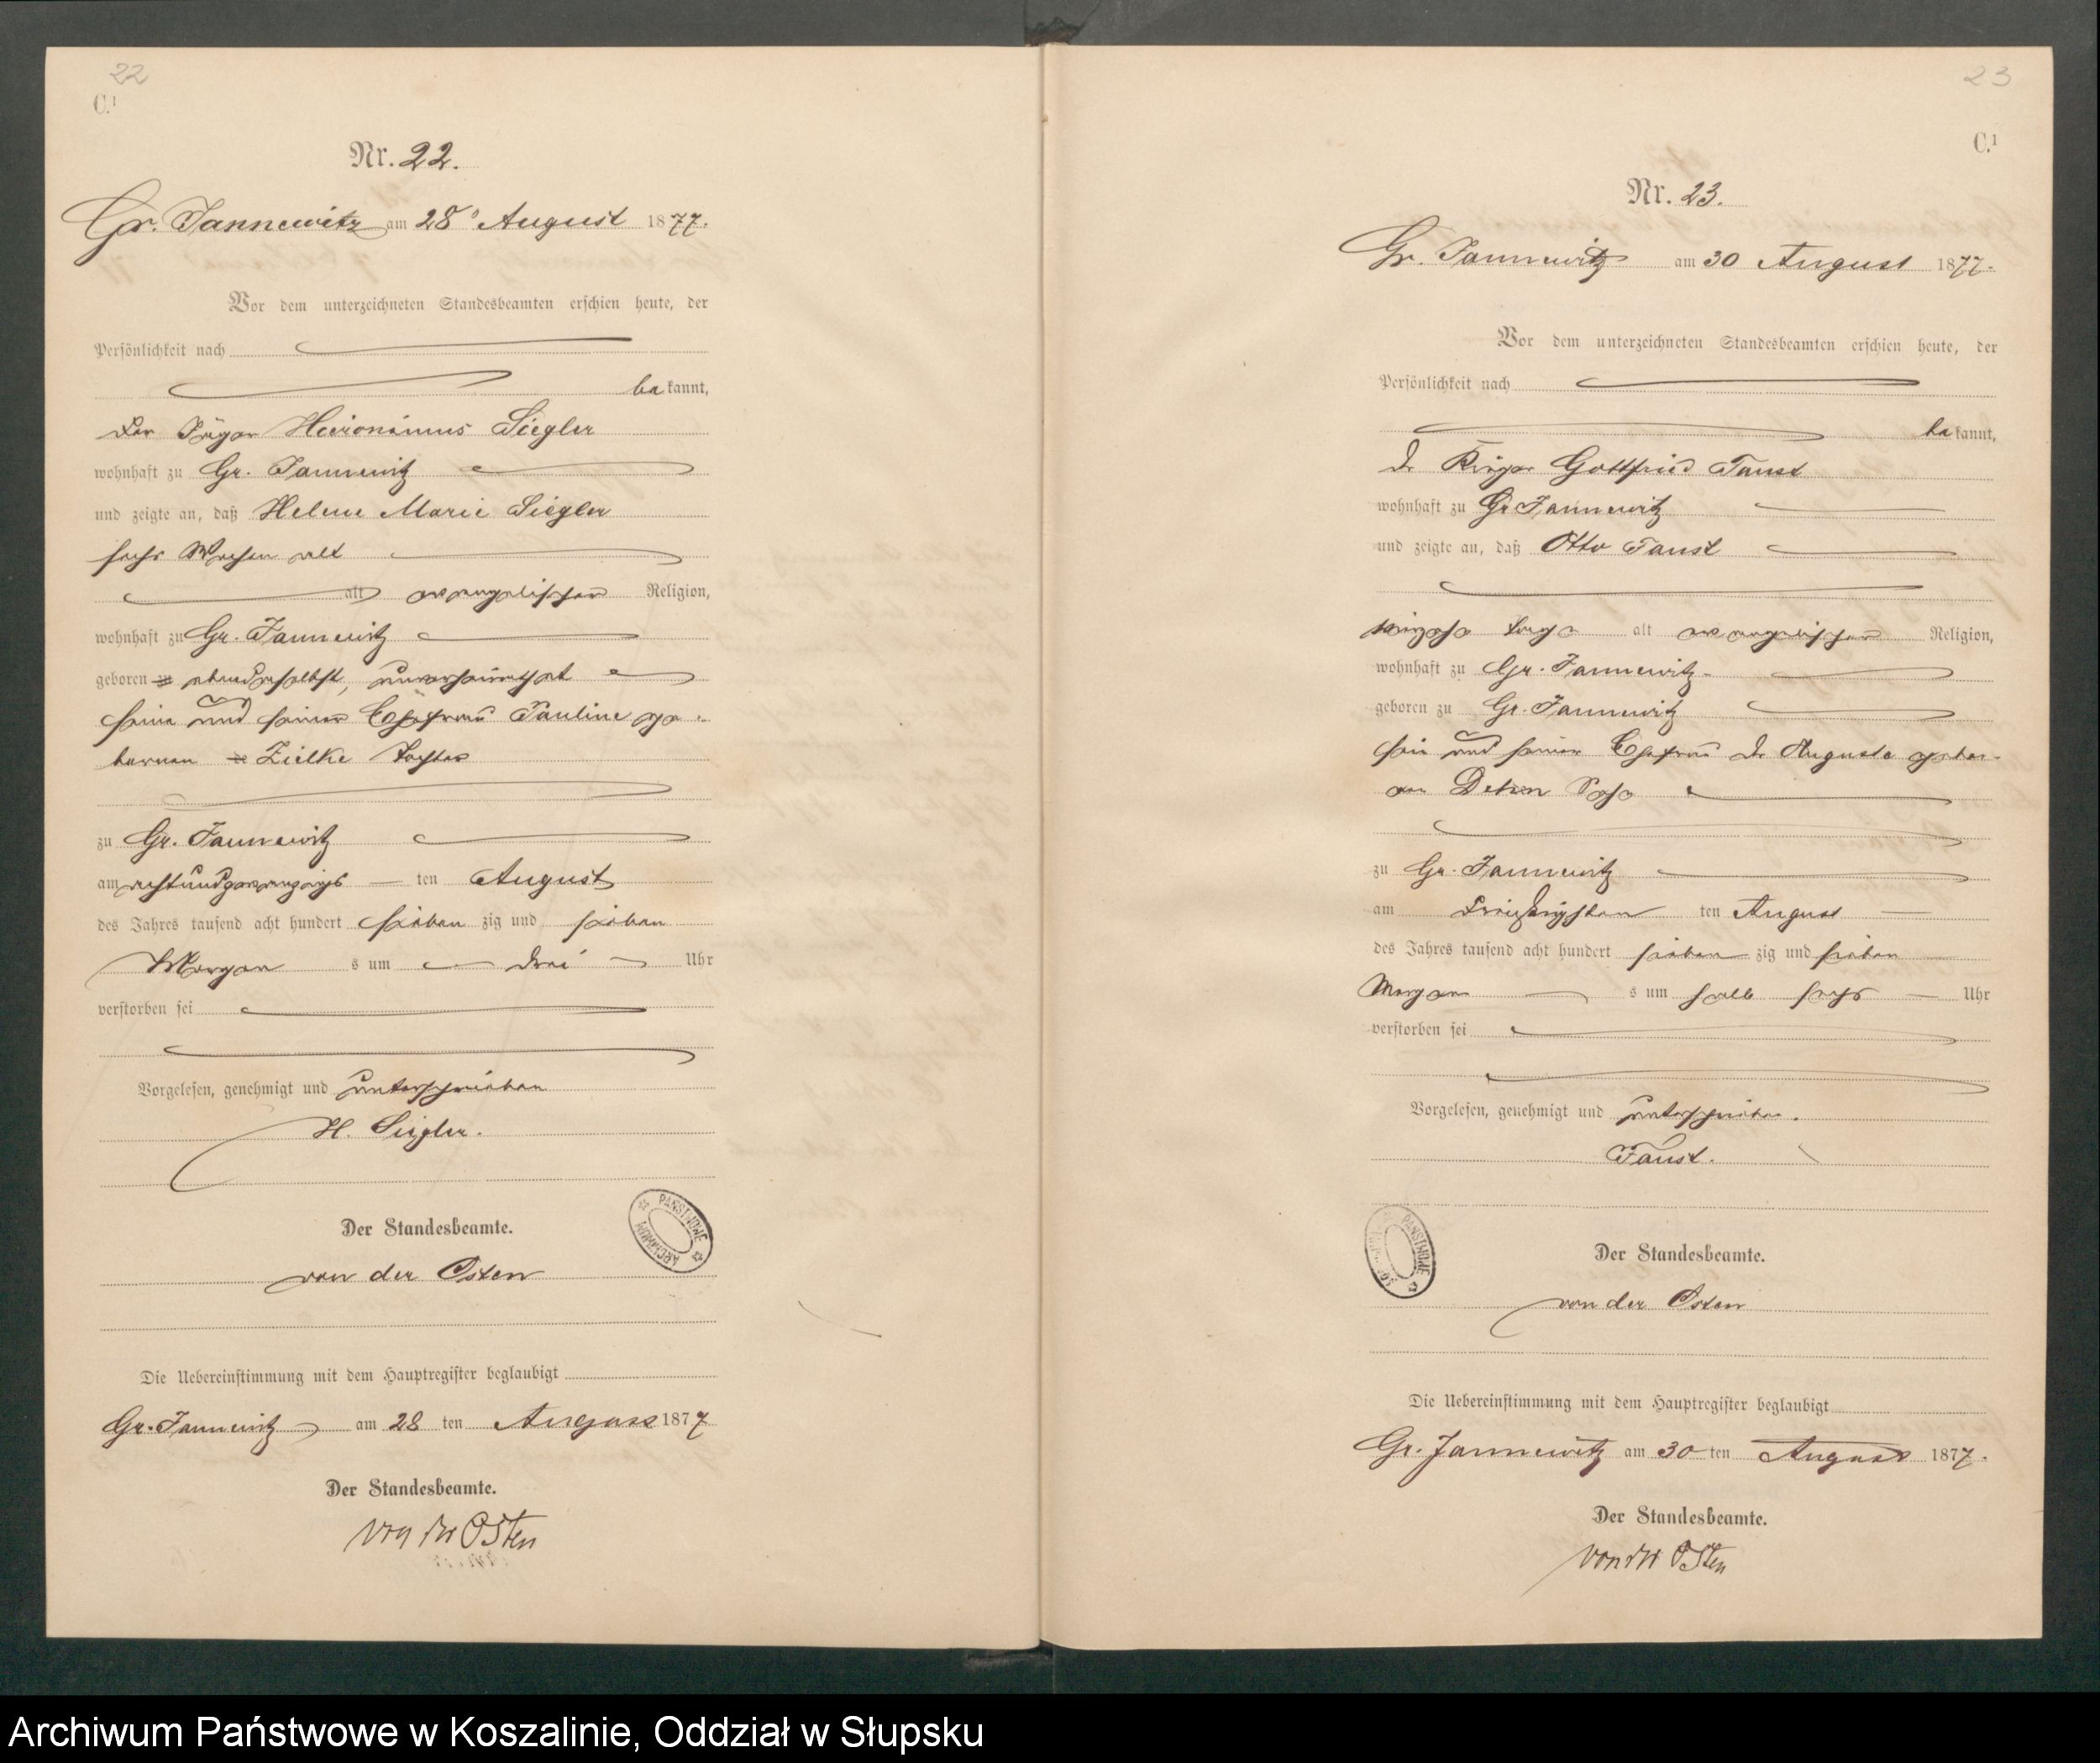 22
C.¹
Nr. 22.
Gr. Jannewitz am 28 August 1877.
Vor dem unterzeichneten Standesbeamten erschien heute, der
Persönlichkeit nach
bekannt,
der Jäger Hieronimus Siegler
wohnhaft zu Gr. Jannewitz
und zeigte an, daß Helene Marie Siegler
sechs Wochen alt
alt evangelischer Religion,
wohnhaft zu Gr. Jannewitz
geboren zu ebendaselbst, unverheirathet
seine und seiner Ehefrau Pauline ge-
bornen Zielke Tochter
zu Gr. Jannewitz
am achtundzwanzigs ten August
des Jahres tausend acht hundert sieben zig und sieben
Morgen s um drei Uhr
verstorben sei
Vorgelesen, genehmigt und unterschrieben
H. Siegler.
Der Standesbeamte.
von der Osten
ARCHIWUM PAŃSTWOWE
Die Uebereinstimmung mit dem Hauptregister beglaubigt
Gr. Jannewitz am 28 ten August 1877
Der Standesbeamte.
von der Osten
23
C.¹
Nr. 23.
Gr. Jannewitz am 30 August 1877.
Vor dem unterzeichneten Standesbeamten erschien heute, der
Persönlichkeit nach
bekannt,
Gottfried Faust
wohnhaft zu Gr Jannewitz
und zeigte an, daß Otto Faust
Tage alt evangelischer Religion,
wohnhaft zu Gr. Jannewitz
geboren zu Gr. Jannewitz
sein und seiner Ehefrau Auguste gebor-
en Sohn
zu Gr. Jannewitz
am dreißigsten ten August
des Jahres tausend acht hundert sieben zig und sieben
Morgen s um halb sechs Uhr
verstorben sei
Vorgelesen, genehmigt und unterschrieben.
Faust.
PAŃSTWOWE
Der Standesbeamte.
von der Osten
Die Uebereinstimmung mit dem Hauptregister beglaubigt
Gr. Jannewitz am 30 ten August 1877.
Der Standesbeamte.
von der Osten
Archiwum Państwowe w Koszalinie, Oddział w Słupsku